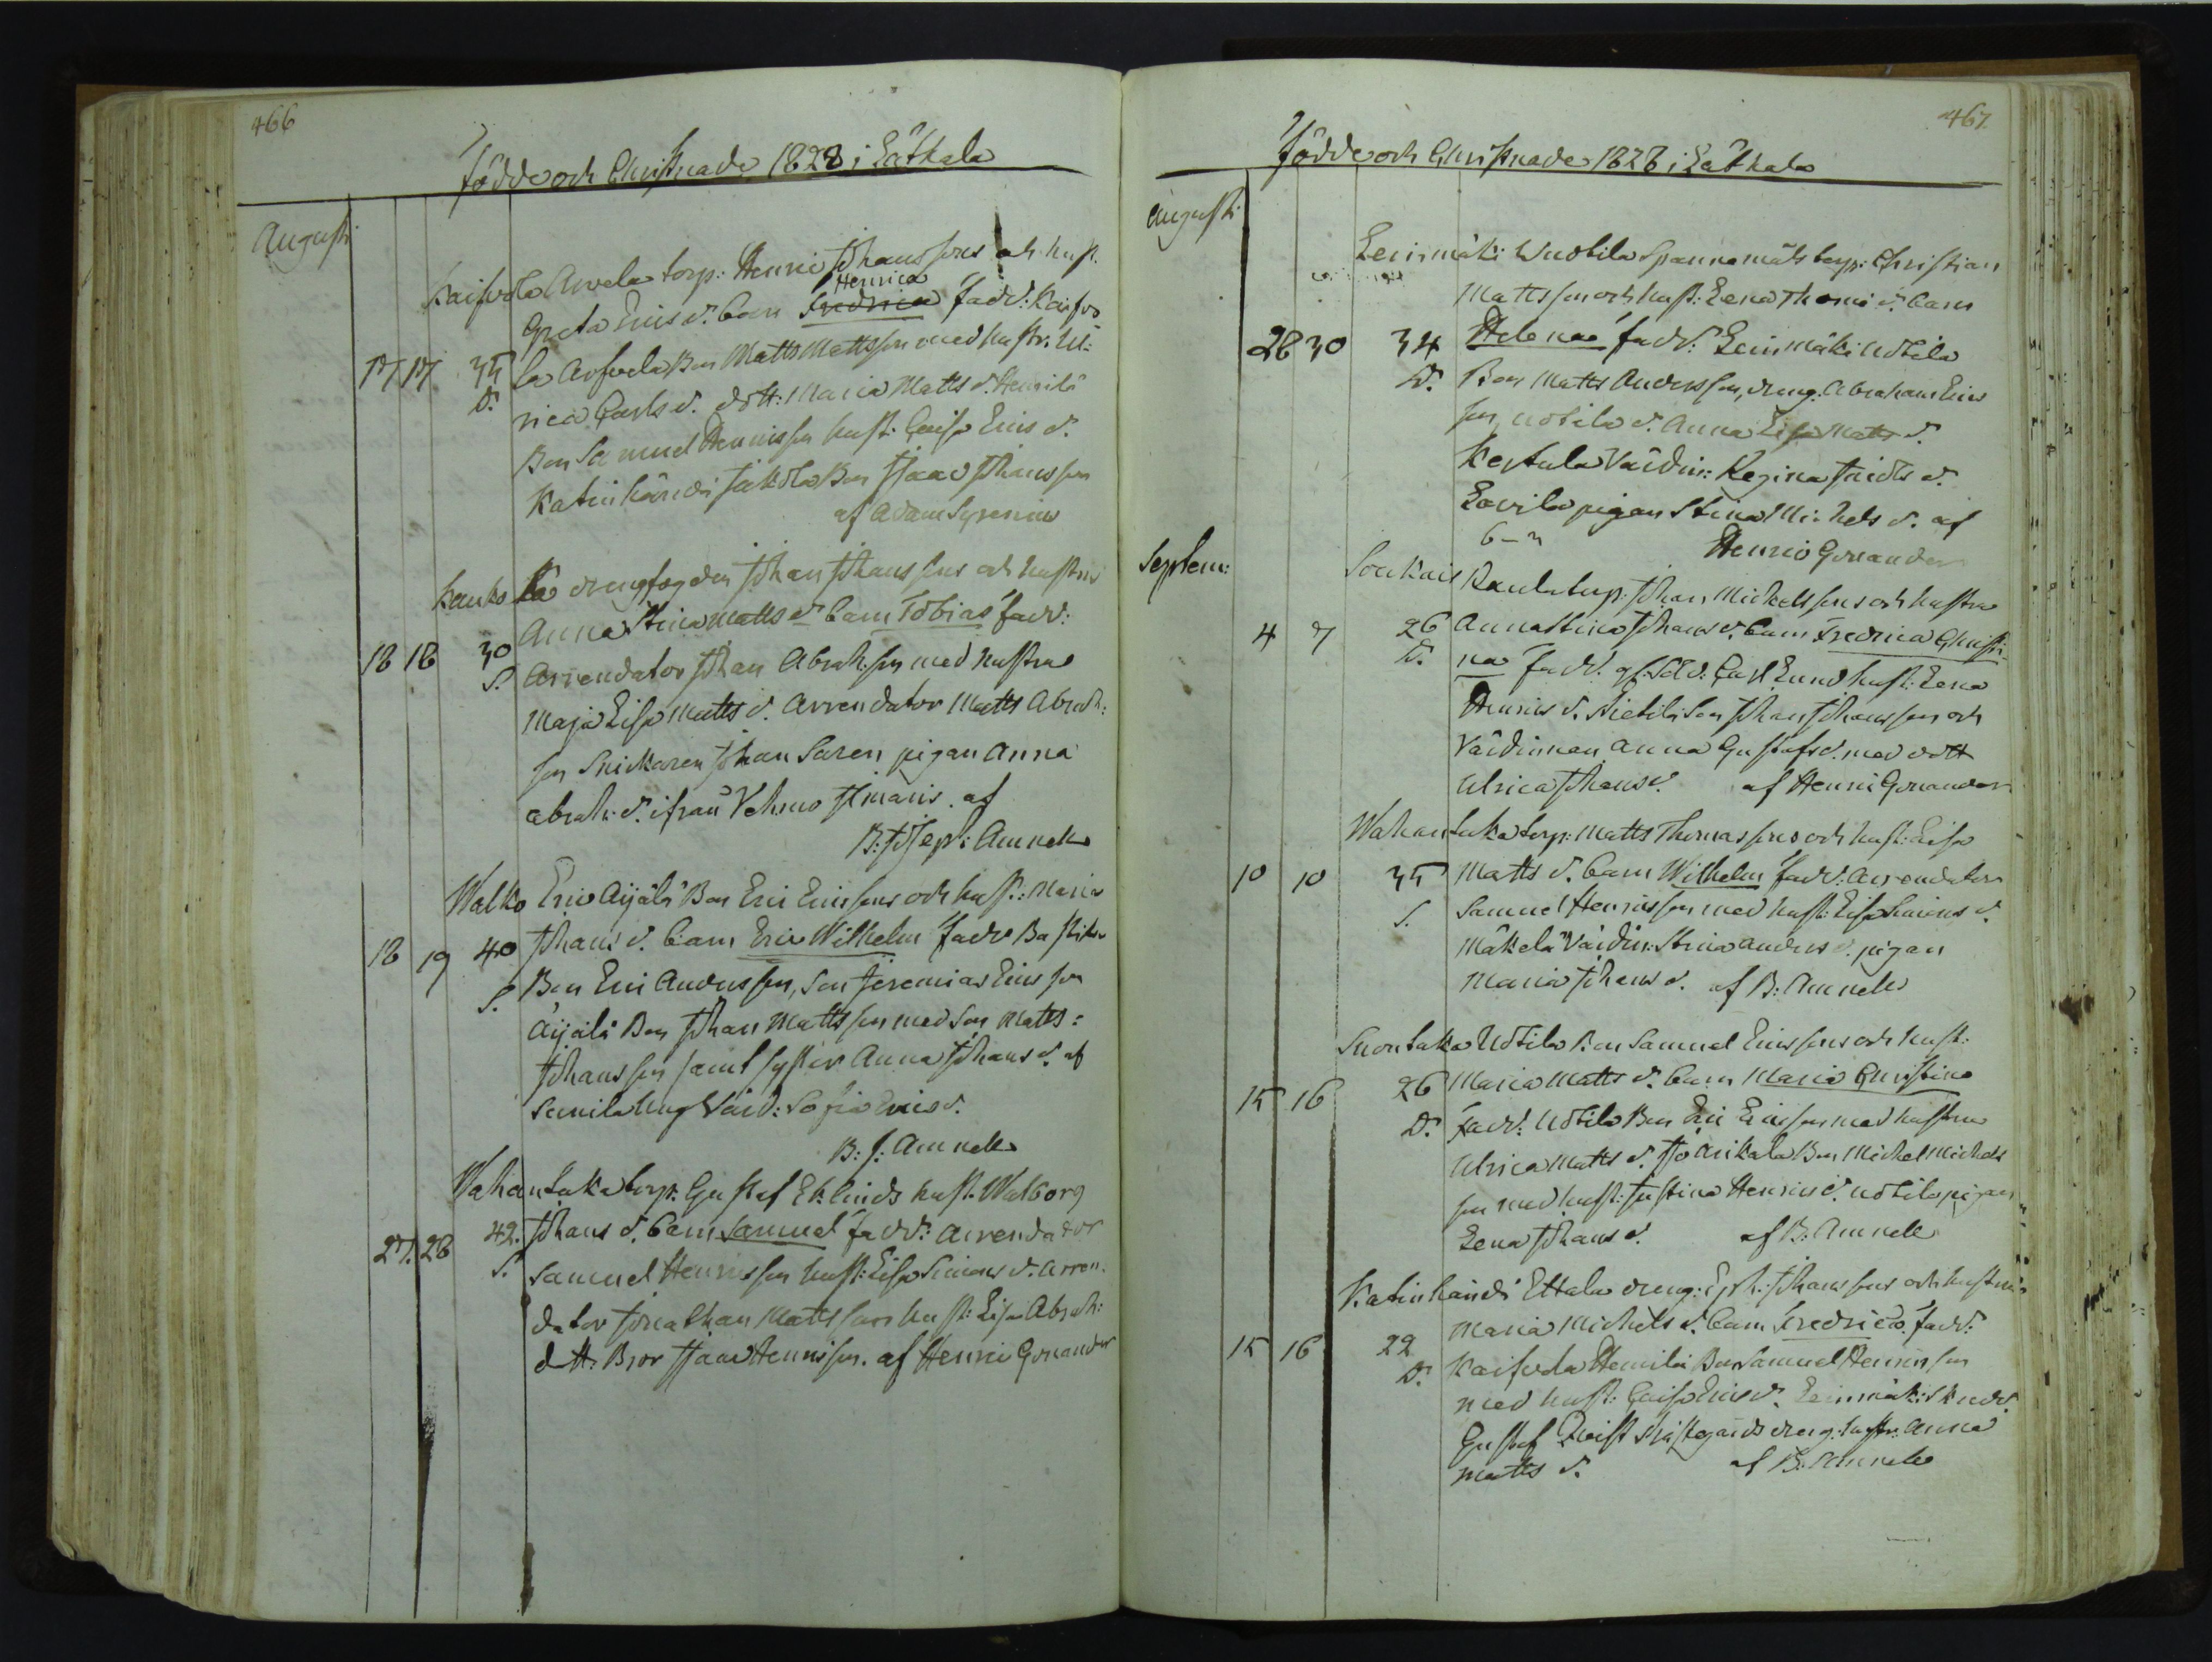 466
Födde och Christnade 1828 i Låtkala
Augusti
Kaisvola Arvela torp: Henric Johanssons och hust.
Henrica
Greta Erics d. barn Fredrica fadd: Kaifvo
17 17 35 la Arfvela Bon Matts Mattsson med hustr. Ul:
D. rica Carls d. dott: Maria Matts d. Heurilä
Bon Samuel Henricsson hust: Caisa Erics d.
Katinhändi Jakola Bon Isaac Johansson
af Adam Syrenius
Kankola drengfogden Johan Johanssons och hustrus
Anna Stina Matts d. barn Tobias fadd:
18 18 30 Arrendator Johan Abrah.son med hustru
S. Maja Lisa Matts d. Arrendator Matts Abrah:
son Snickaren Johan Saren pigan Anna
Abrah: d. ifrån Vehmo Himois. af
B: Josep: Amnell
Walko Eric Äijälä Bon Eric Ericssons och hust.: Maria
18 19 40 Johans d. barn Eric Wilhelm fadd
S. Bon Eric Andersson, Son Jeremias Ericsson
Äijälä Bon Johan Mattsson med Son Matts:
Johansson samt syster Anna Johans d. af
Sunila ung Värd: Sofia Erics d.
B: J: Amnell
Wahantaka torp: Gustaf Eklinds hust. Walborg
27. 28 42. Johans d. barn Samuel fadd: Arrendator
S. Samuel Henricsson hust: Lisa Simons d. Arren-
dator Jonathan Mattsson hust: Lisa Abrah:
dott: Bror Isaac Henricson. af Henric Gonander
467.
Födde och Christnade 1828 i Låtkala
Augusti
Leinmäki Undtila Spannemåls torp: Christian
Mattsson och hust: Lena Thomæ d. barn
28 30 34 Helena fadd: Leinmäki Udtila
D. Bon Matts Andersson, dreng: Abraham Erics
son, Udtila d. Anna Lisa Matts d.
Kestula Värdin: Regina Fridts d.
Lavila pigan Stina Michels d. af
6-n Henric Gonander
Septem:
Soukais Kaula torp: Johan Michelssons och hustru
4 7 26 Anna Stina Johans d. barn Fredrica Christi-
D. na fadd. gl: Sold: Carl Lund hust: Lena
Henrics d. Nietilä Son Johan Johansson och
Värdinnan Anna Gustafs d. med dott
Ulrica Johans d. af Henric Gonander
Wahantaka torp: Matts Thomassons och hust: Lisa
10 10 35 Matts d. barn Wilhelm fadd: Arrendator
S. Samuel Henricsson med hust: Lisa Simons d.
Mäkelä Värdin: Stina Anders d. pigan
Maria Johans d. af B: Amnell
Suontaka Udtila Bon Samuel Ericssons och hust:
15 16 26 Maria Matts d. barn Maria Christina
D. fadd: Udtila Bon Eric Ericsson med hustru
Ulrica Matts d. Hoarikala Bon Michel Michels
son med hust: Justina Henrics d. Udtila pigan
Lena Johans d. af B: Amnell
Katinhändi Ettala dreng: Eph: Johanssons och hustrus
15 16 22 Maria Michels d. barn Fredrica. fadd:
D. Kaifvola Heurilä Bon Samuel Henricsson
med hust: Caisa Erics d. Leinmäki
Gustaf Qvist Prästegårds dreng: hustr: Anna
Matts d. af B: Amnell